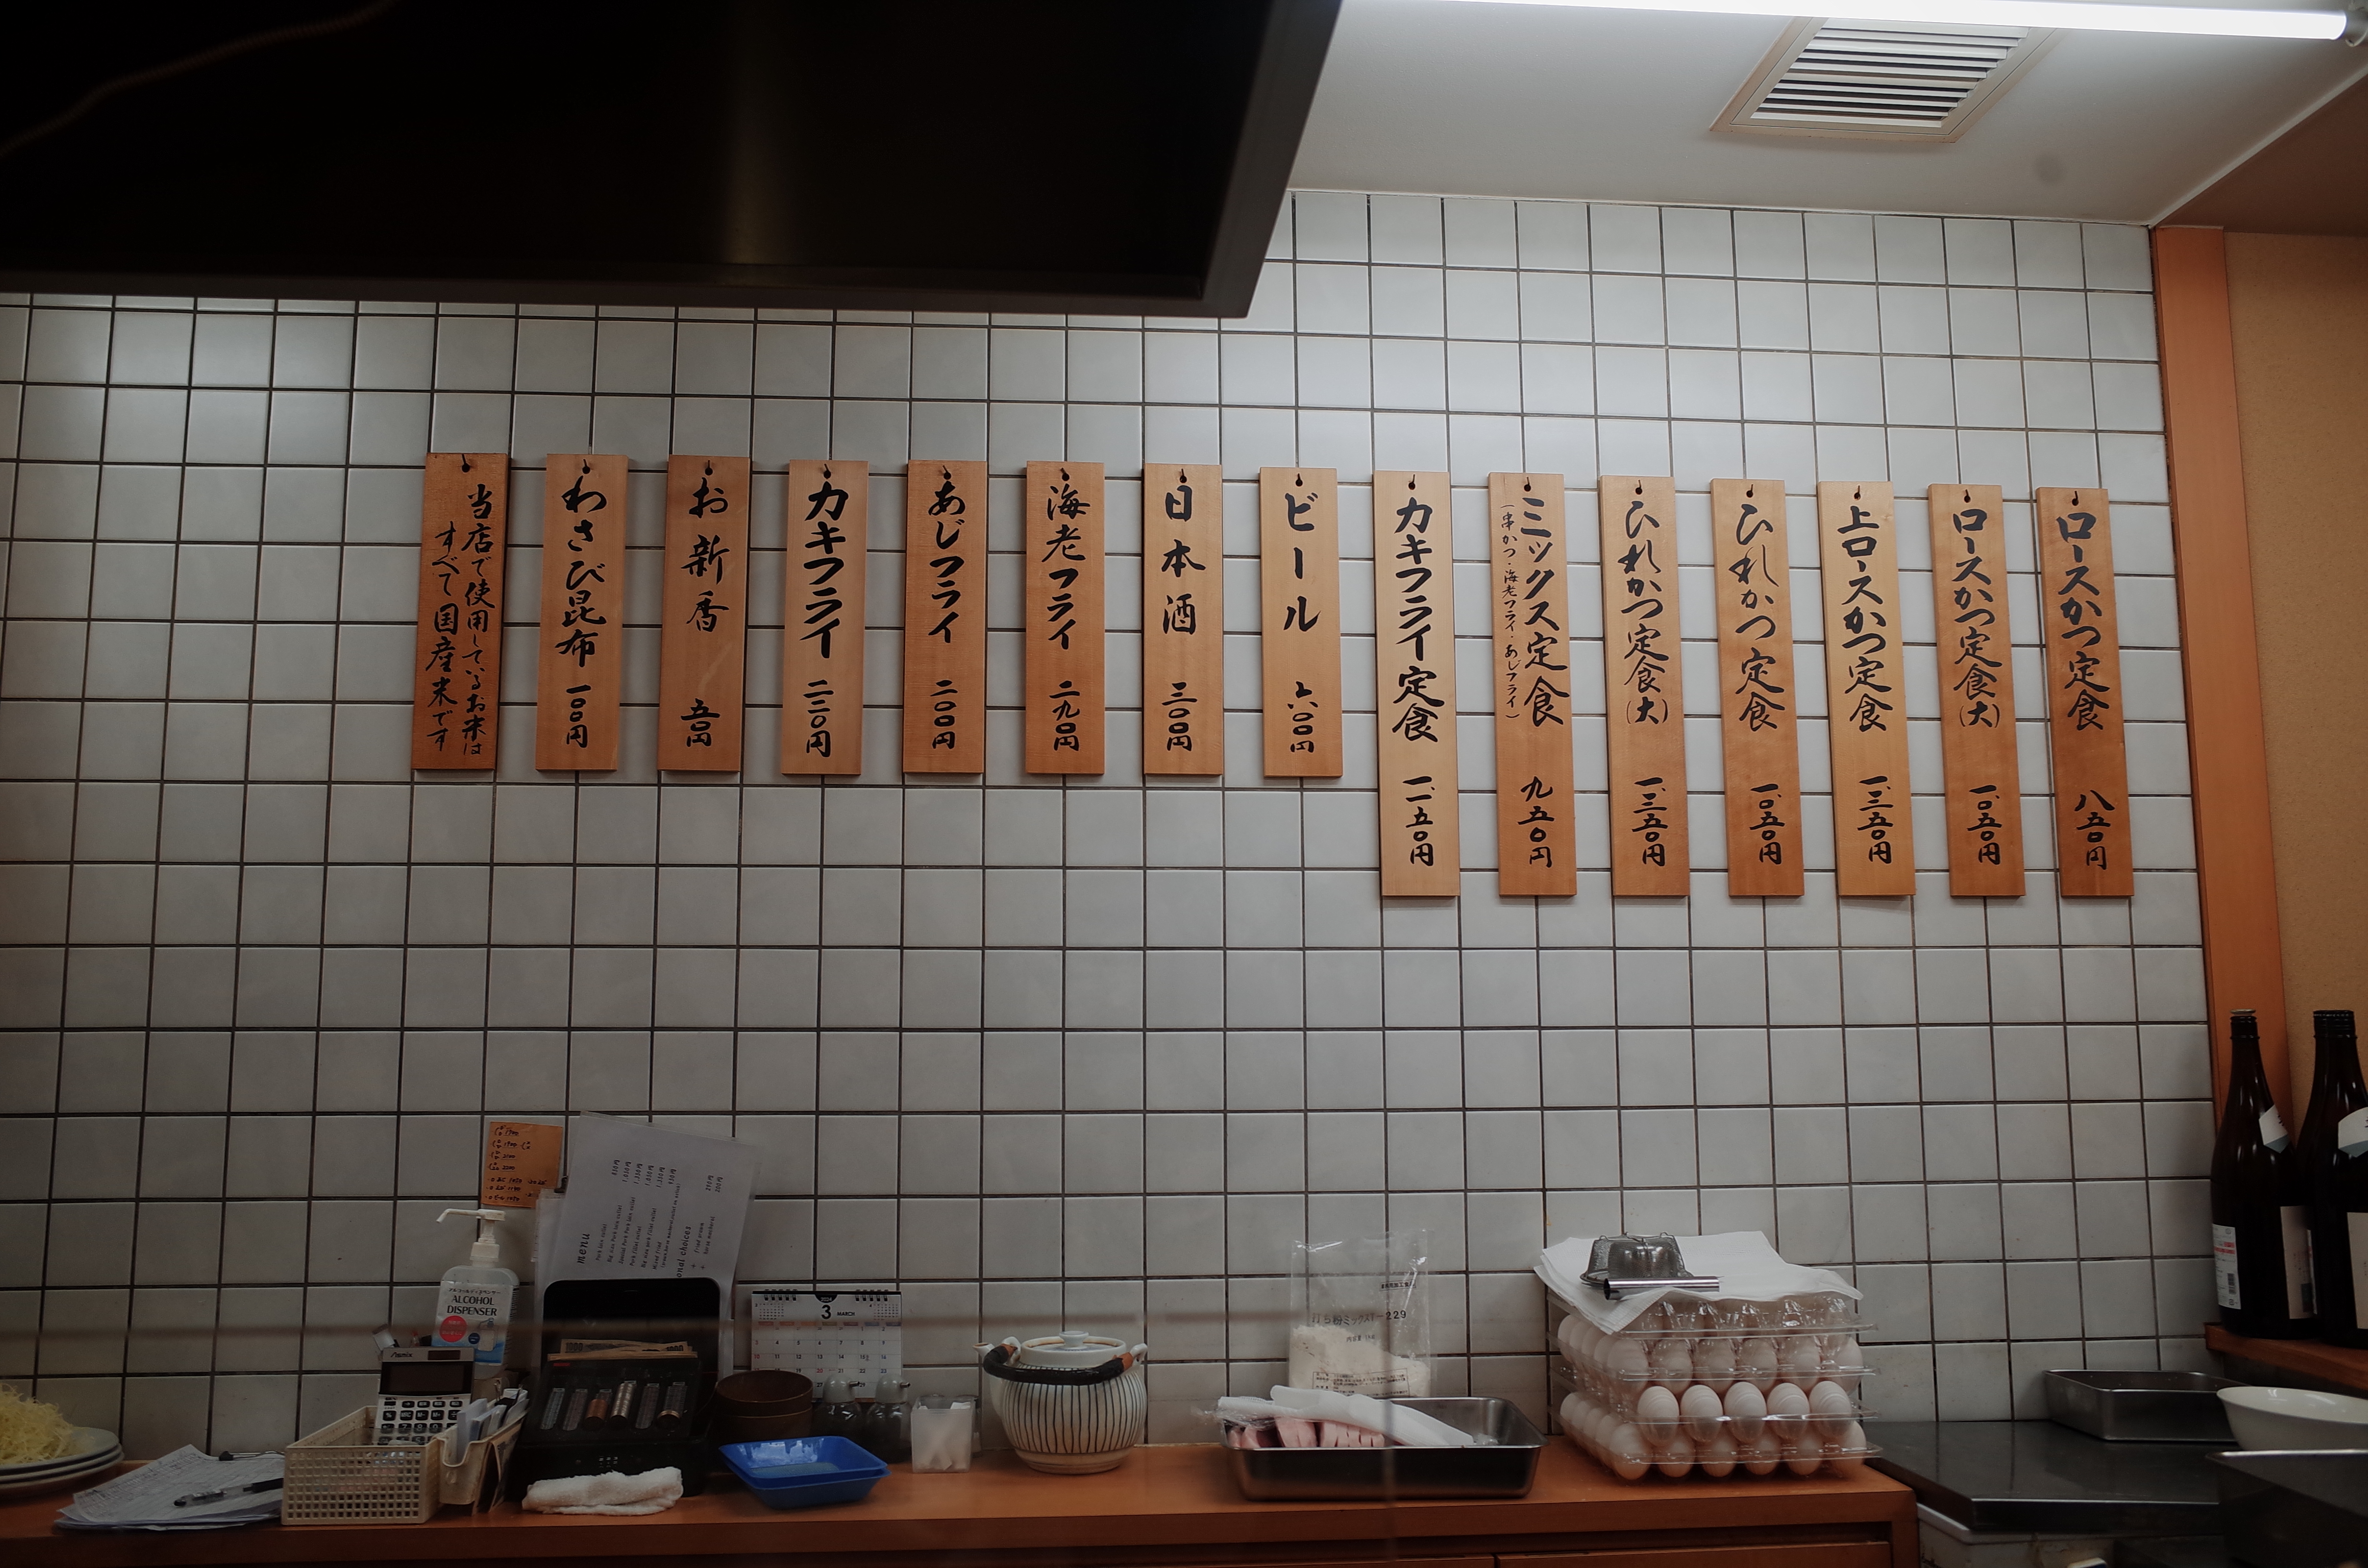 ロースかつ定食 八五〇円
ロースかつ定食(大) 一、〇五〇円
上ロースかつ定食 一、三五〇円
ひれかつ定食 一、〇五〇円
ひれかつ定食(大) 一、三五〇円
ミックス定食 九五〇円
(串かつ・海老フライ・あじフライ)
カキフライ定食 一、一五〇円
ビール 六〇〇円
日本酒 三〇〇円
海老フライ 二九〇円
あじフライ 二〇〇円
カキフライ 二二〇円
お新香 五〇円
わさび昆布 一〇〇円
当店で使用しているお米は
すべて国産米です
menu
ALCOHOL
DISPENSER
3 MARCH
打ち粉ミックスT-229